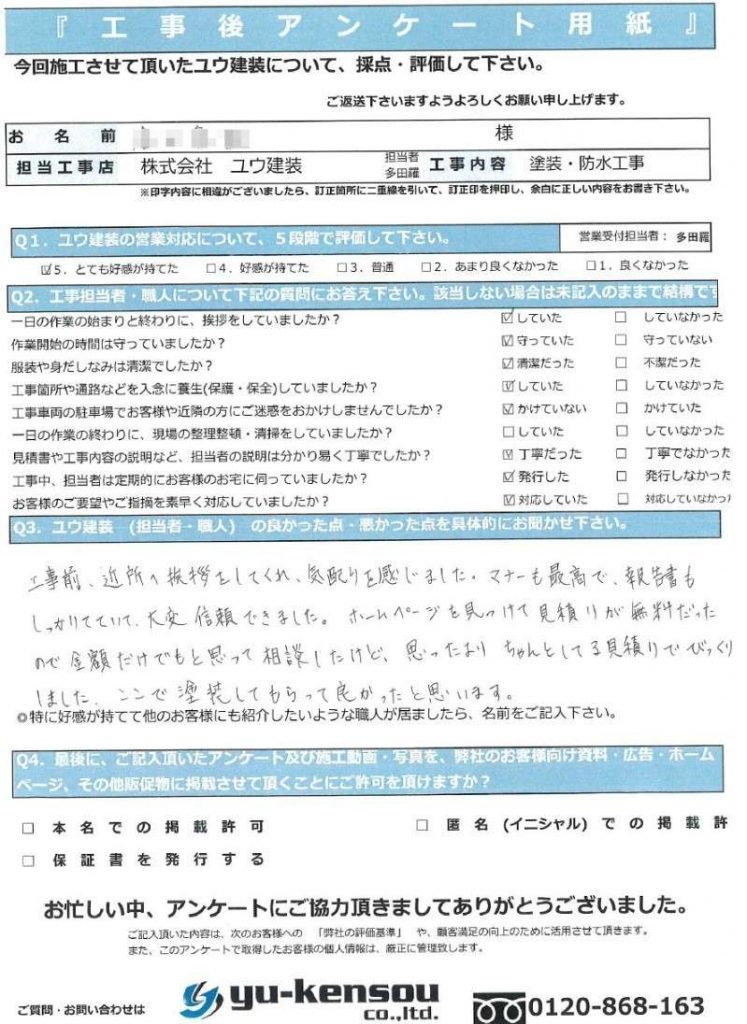 『工事後アンケート用紙』
今回施工させて頂いたユウ建装について、採点・評価して下さい。
ご返送下さいますようよろしくお願い申し上げます。
お名前 様
担当工事店 株式会社 ユウ建装 担当者 多田羅 工事内容 塗装・防水工事
※印字内容に相違がございましたら、訂正箇所に二重線を引いて、訂正印を押印し、余白に正しい内容をお書き下さい。
Q1. ユウ建装の営業対応について、5段階で評価して下さい。 営業受付担当者: 多田羅
☑5. とても好感が持てた □4. 好感が持てた □3. 普通 □2. あまり良くなかった □1. 良くなかった
Q2. 工事担当者・職人について下記の質問にお答え下さい。該当しない場合は未記入のままで結構です
一日の作業の始まりと終わりに、挨拶をしていましたか? ☑していた □ していなかった
作業開始の時間は守っていましたか? ☑守っていた □ 守っていない
服装や身だしなみは清潔でしたか? ☑清潔だった □ 不潔だった
工事箇所や通路などを入念に養生(保護・保全)していましたか? ☑していた □ していなかった
工事車両の駐車場でお客様や近隣の方にご迷惑をおかけしませんでしたか? ☑かけていない □ かけていた
一日の作業の終わりに、現場の整理整頓・清掃をしていましたか? □していた □ していなかった
見積書や工事内容の説明など、担当者の説明は分かり易く丁寧でしたか? ☑丁寧だった □ 丁寧でなかった
工事中、担当者は定期的にお客様のお宅に伺っていましたか? ☑発行した □ 発行しなかった
お客様のご要望やご指摘を素早く対応していましたか? ☑対応していた □ 対応していなかっ
Q3. ユウ建装 (担当者・職人) の良かった点・悪かった点を具体的にお聞かせ下さい。
工事前、近所の挨拶をしてくれ、気配りを感じました。マナーも最高で、報告書も
しっかりてていて、大変信頼できました。ホームページを見つけて見積りが無料だった
ので金額だけでもと思って相談したけど、思ったより ちゃんとしてる見積りでびっくり
しました、ここで塗装してもらって良かったと思います。
◎特に好感が持てて他のお客様にも紹介したいような職人が居ましたら、名前をご記入下さい。
Q4. 最後に、ご記入頂いたアンケート及び施工動画・写真を、弊社のお客様向け資料・広告・ホーム
ページ、その他販促物に掲載させて頂くことにご許可を頂けますか?
□ 本名での掲載許可 □ 匿名(イニシャル)での掲載許
□ 保証書を発行する
お忙しい中、アンケートにご協力頂きましてありがとうございました。
ご記入頂いた内容は、次のお客様への 「弊社の評価基準」 や、顧客満足の向上のために活用させて頂きます。
また、このアンケートで取得したお客様の個人情報は、厳正に管理致します。
ご質問・お問い合わせは yu-kensou co.,ltd. 0120-868-163